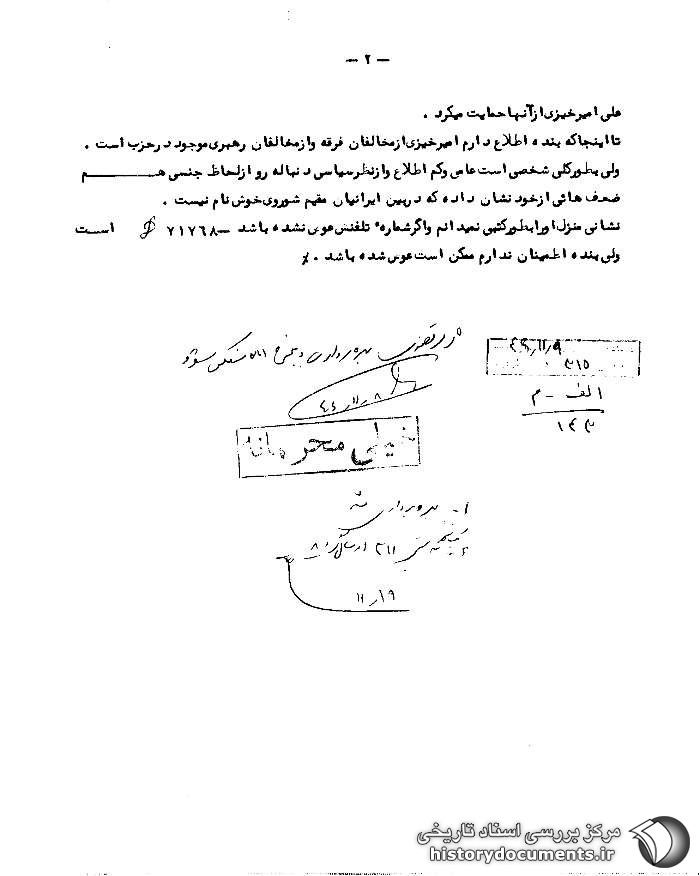 — ۲ —
علی امیرخیزی از آنها حمایت میکرد .
تا اینجا که بنده اطلاع دارم امیرخیزی از مخالفان فرقه و از مخالفان رهبری موجود در حزب است .
ولی بطور کلی شخصی است عامی و کم اطلاع و از نظر سیاسی دنباله رو از لحاظ جنسی هم
ضعف هائی از خود نشان داده که در بین ایرانیان مقیم شوروی خوش نام نیست .
نشانی منزل او را بطور کتبی نمیدانم و اگر شماره تلفنش عوض نشده باشد — ۷۱۷۶۸ است
ولی بنده اطمینان ندارم ممکن است عوض شده باشد . ٪
بهره برداری
۳۱۵
الف - م
۱۴۳
خیلی محرمانه
۱- بهره برداری
۳۱۱
۱۱٫۱۹
مرکز بررسی اسناد تاریخی
historydocuments.ir